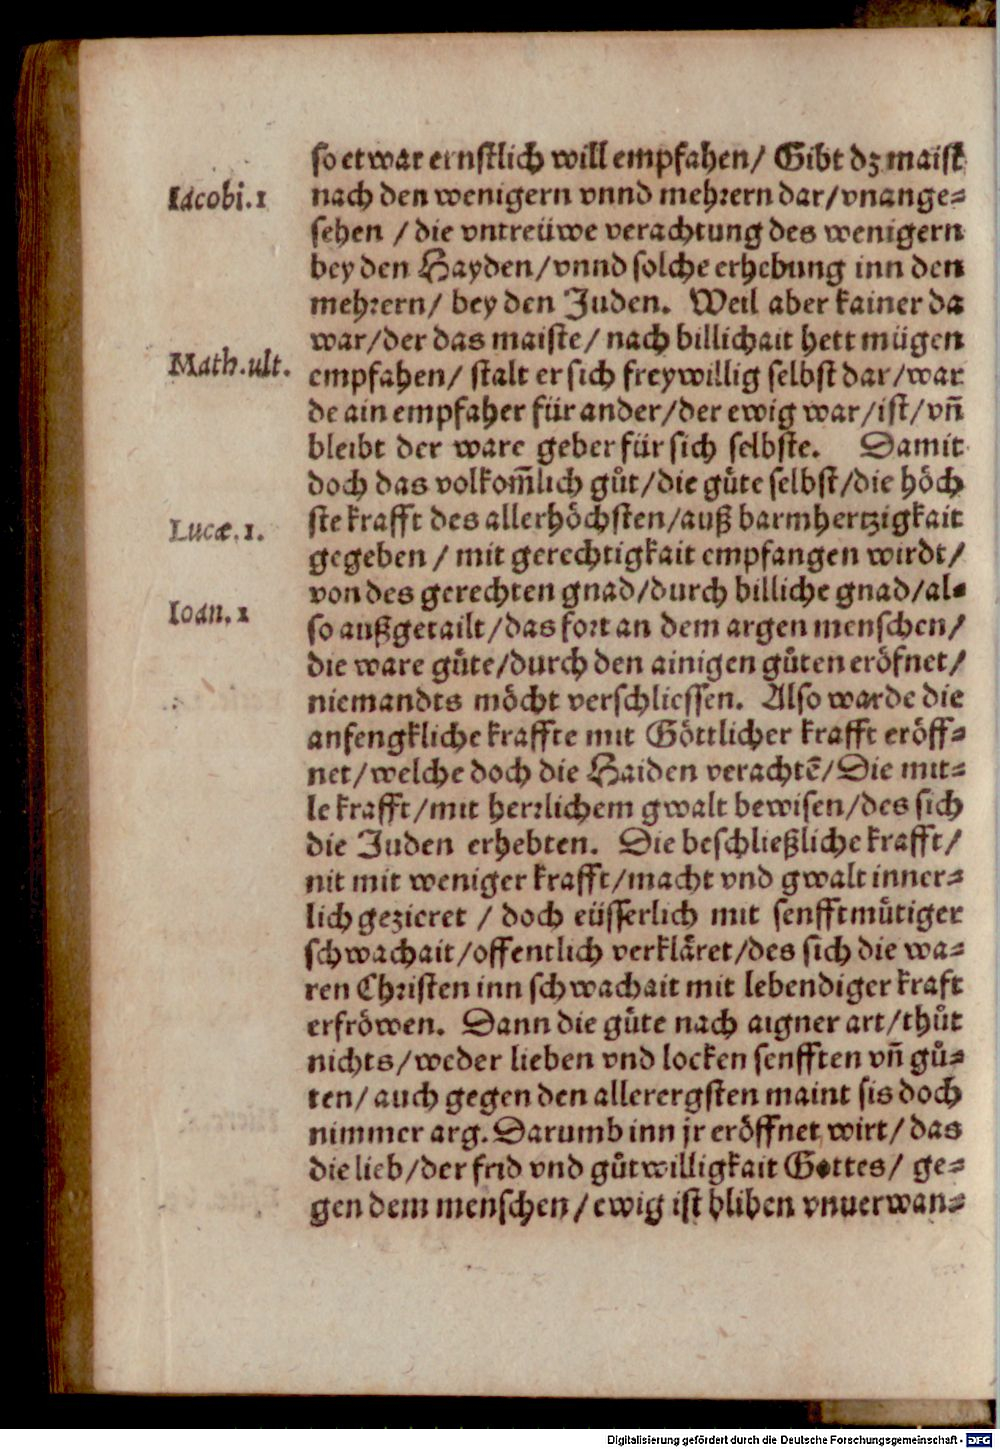 so etwar ernstlich will empfahen/ Gibt dz maist
Iacobi.1
nach den wenigern vnnd mehꝛern dar/vnange⸗
sehen / die vntreüwe verachtung des wenigern
bey den Hayden/vnnd solche erhebung inn den
mehꝛern/ bey den Juden. Weil aber kainer da
war/der das maiste/ nach billichait hett mügen
Math.ult.
empfahen/ stalt er sich freywillig selbst dar/war
de ain empfaher für ander/der ewig war/ist/vñ
bleibt der ware geber für sich selbste. Damit
doch das volkom̃lich gůt/die gůte selbst/die höch
Lucæ.1.
ste krafft des allerhöchsten/auß barmhertzigkait
gegeben / mit gerechtigkait empfangen wirdt/
von des gerechten gnad/durch billiche gnad/al⸗
Ioan.1
so außgetailt/das foꝛt an dem argen menschen/
die ware gůte/durch den ainigen gůten eröfnet/
niemandts möcht verschliessen. Also warde die
anfengkliche kraffte mit Göttlicher krafft eröff⸗
net/welche doch die Haiden verachtẽ/Die mit⸗
le krafft/mit herꝛlichem gwalt bewisen/des sich
die Juden erhebten. Die beschließliche krafft/
nit mit weniger krafft/macht vnd gwalt inner⸗
lich gezieret / doch eüsserlich mit senfftmůtiger
schwachait/offentlich verkläret/des sich die wa⸗
ren Chꝛisten inn schwachait mit lebendiger kraft
erfröwen. Dann die gůte nach aigner art/thůt
nichts/weder lieben vnd locken senfften vñ gů⸗
ten/ auch gegen den allerergsten maint sis doch
nimmer arg. Darumb inn jr eröffnet wirt/ das
die lieb/der frid vnd gůtwilligkait Gottes/ ge⸗
gen dem menschen/ewig ist bliben vnuerwan⸗
Digitalisierung gefördert durch die Deutsche Forschungsgemeinschaft - DFG